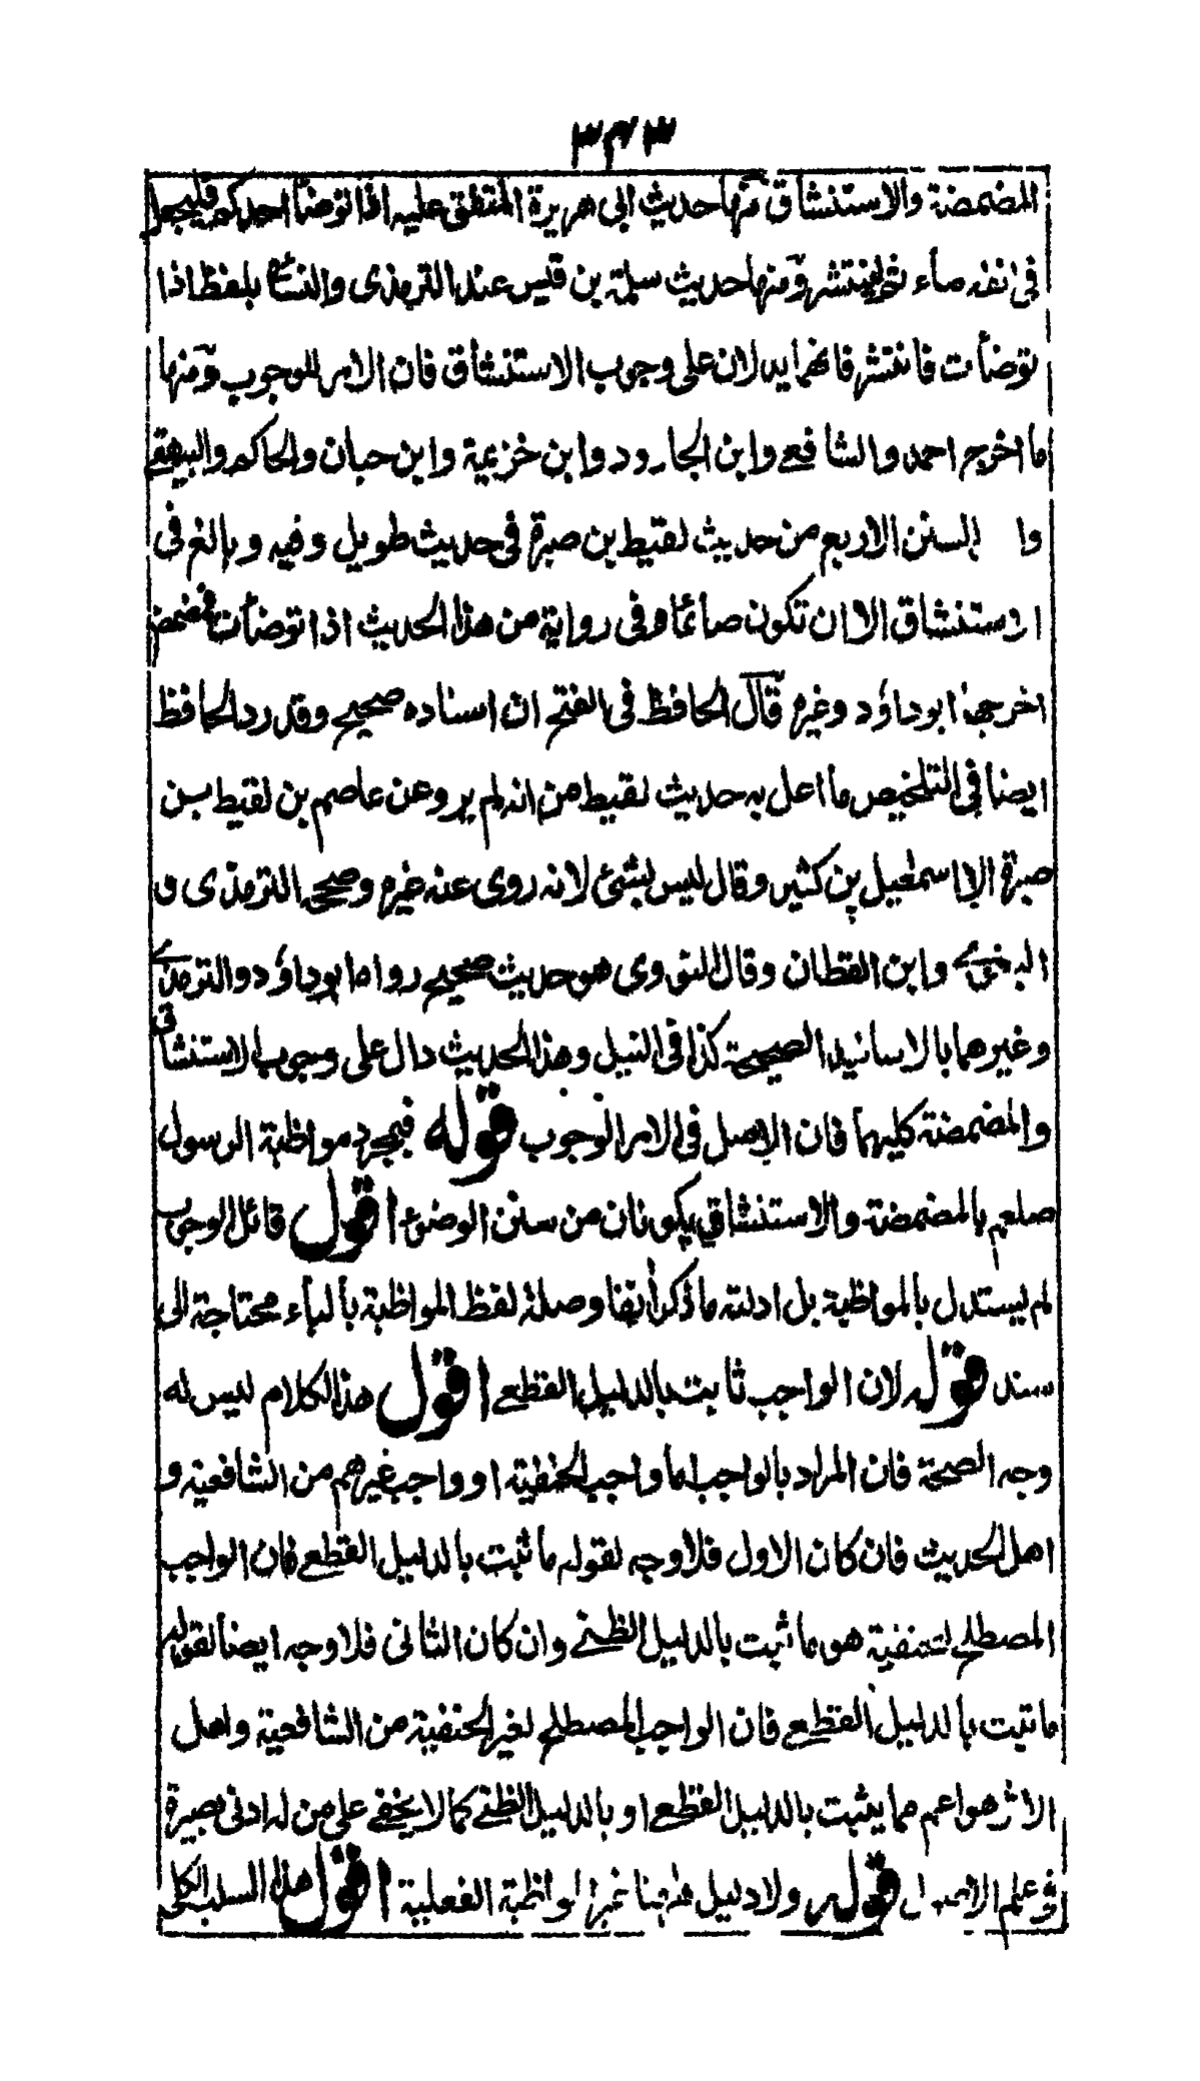 ٣٤٣
المضمضة والاستنشاق منها حديث ابى هريرة المتفق عليه اذا توضأ احدكم فليجعل
فى انفه ماء ثم لينتثر ومنها حديث سلمة بن قيس عند الترمذى والنسائى بلفظ اذا
توضأت فانتثر فانهما يدلان على وجوب الاستنشاق فان الامر للوجوب ومنها
ما اخرج احمد والشافعى وابن الجارود وابن خزيمة وابن حبان والحاكم والبيهقى
وا السنن الاربع من حديث لقيط بن صبرة فى حديث طويل وفيه وبالغ فى
الاستنشاق الا ان تكون صائما وفى رواية من هذا الحديث اذا توضأت فمضمض
اخرجها ابو داؤد وغيره قال الحافظ فى الفتح ان اسناده صحيح وقد رد الحافظ
ايضا فى التلخيص ما اعل به حديث لقيط من انه لم يرو عن عاصم بن لقيط بن
صبرة الا اسمعيل بن كثير وقال ليس بشئ لانه روى عنه غيره وصححه الترمذى و
البغوى وابن القطان وقال النووى هو حديث صحيح رواه ابو داؤد والترمذى
وغيرهما بالاسانيد الصحيحة كذا فى النيل وهذا الحديث دال على وجوب الاستنشاق
والمضمضة كليهما فان الاصل فى الامر الوجوب قوله فبمجرد مواظبة الرسول
صلعم بالمضمضة والاستنشاق يكونان من سنن الوضوء اقول قائل الوجوب
لم يستدل بالمواظبة بل ادلته ما ذكر آنفا وصلة لفظ المواظبة بالباء محتاجة الى
سند قوله لان الواجب ثابت بالدليل القطعى اقول هذا الكلام ليس له
وجه الصحة فان المراد بالواجب اما واجب الحنفية او واجب غيرهم من الشافعية و
اهل الحديث فان كان الاول فلا وجه لقوله ما ثبت بالدليل القطعى فان الواجب
المصطلح للحنفية هو ما ثبت بالدليل الظنى وان كان الثانى فلا وجه ايضا لقوله
ما ثبت بالدليل القطعى فان الواجب المصطلح لغير الحنفية من الشافعية واهل
الاثر هو اعم مما يثبت بالدليل القطعى او بالدليل الظنى كما لا يخفى على من له ادنى بصيرة
فى علم الاصول قوله ولا دليل ههنا غير المواظبة الفعلية اقول هذا السلب الكلى